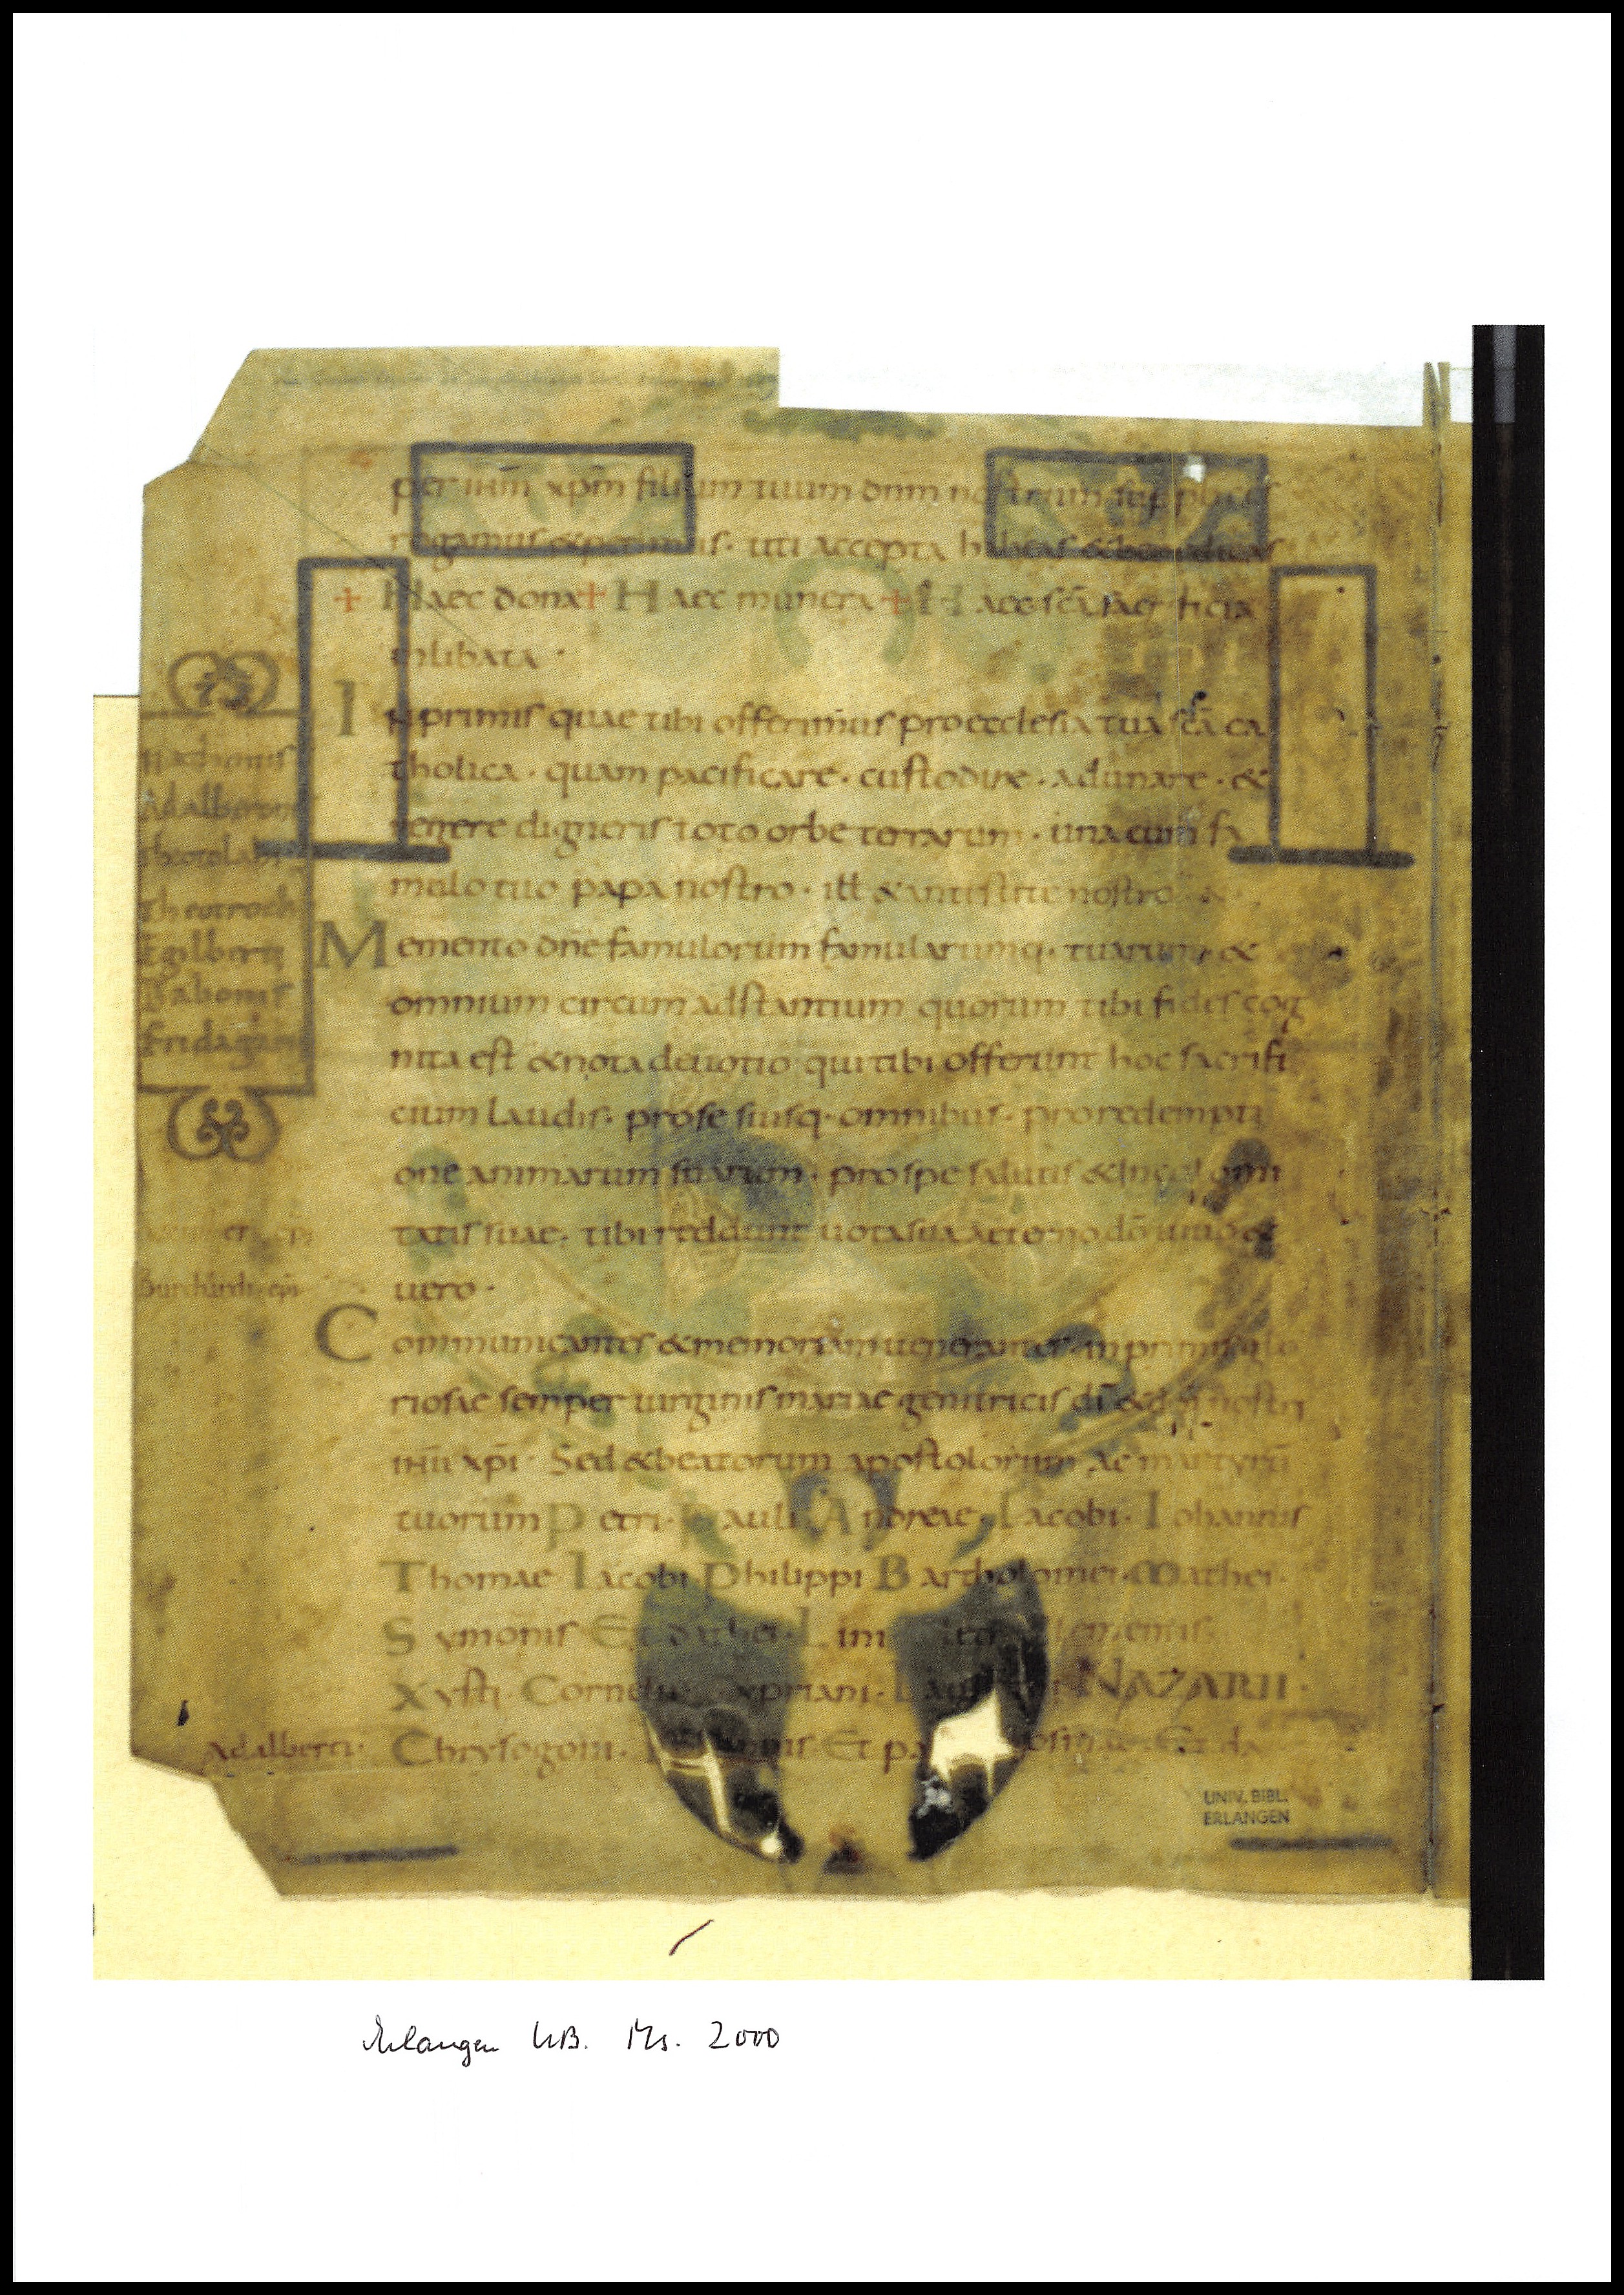 per ihm̅ xp̅m filium tuum dnm nostrum supplices
rogamus & petimus · uti accepta habeas & benedicas
+ Haec dona + Haec munera + Haec sc̅a sacrificia
inlibata ·
Inprimis quae tibi offerimus pro ecclesia tua sc̅a ca
tholica · quam pacificare · custodire · adunare · &
regere digneris toto orbe terrarum · una cum fa
mulo tuo papa nostro · ill & antistite nostro · & ·
Memento dn̅e famulorum famularumq · tuarum · &
omnium circum adstantium quorum tibi fides cog
nita est & nota deuotio qui tibi offerunt hoc sacrifi
cium laudis · pro se suisq · omnibus · pro redempti
one animarum suarum · pro spe salutis & incolomi
tatis suae · tibi reddunt uota sua aeterno do̅ uiuo &
uero ·
Communicantes & memoriam uenerantes · inprimis glo
riosae semper uirginis mariae genitricis di̅ & dn̅i nostri
ihu̅ xp̅i · Sed & beatorum apostolorum ac martyru̅
tuorum Petri · Pauli Andreae · Iacobi · Iohannis
Thomae Iacobi Philippi Bartholomei · Mathei ·
Symonis Et dathei · Lini leti lementis ·
Xysti · Cornelii xpriani · Lau NAZARII ·
Chrysogoni · Et pa osmae Et da
Hathonis
Adalberonis
Theotolahi
Theotroch
Egilberti
Babonis
Fridagari
Burchardi ep̅i
Adalberti ·
UNIV. BIBL.
ERLANGEN
Erlangen UB. Ms. 2000